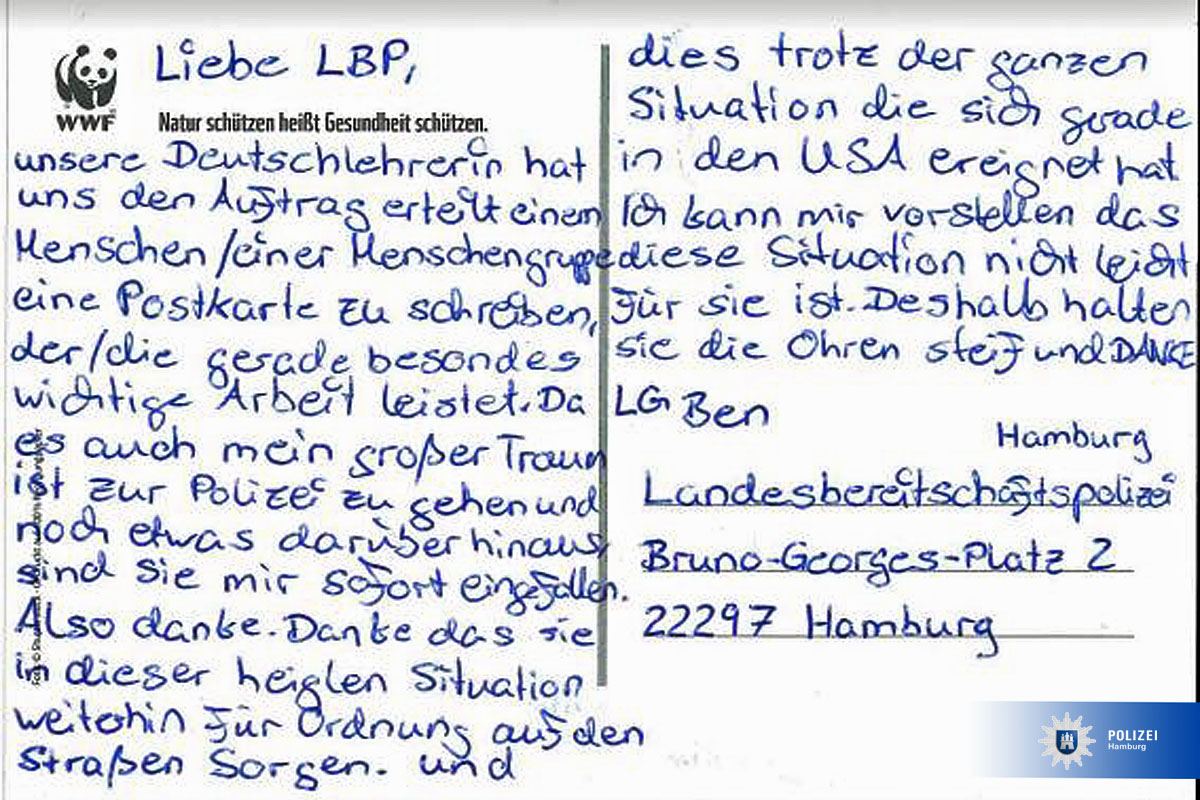 Liebe LBP,
WWF
Natur schützen heißt Gesundheit schützen.
unsere Deutschlehrerin hat
uns den Auftrag erteilt einem
Menschen/einer Menschengruppe
eine Postkarte zu schreiben,
der/die gerade besondes
wichtige Arbeit leistet. Da
es auch mein großer Traum
ist zur Polizei zu gehen und
noch etwas darüber hinaus,
sind sie mir sofort eingefallen.
Also danke. Danke das sie
in dieser heiglen Situation
weiterhin für Ordnung auf den
Straßen Sorgen. und
dies trotz der ganzen
Situation die sich gerade
in den USA ereignet hat
Ich kann mir vorstellen das
diese Situation nicht leicht
für sie ist. Deshalb halten
sie die Ohren steif und DANKE
LG Ben
Hamburg
Landesbereitschaftspolizei
Bruno-Georges-Platz 2
22297 Hamburg
POLIZEI
Hamburg